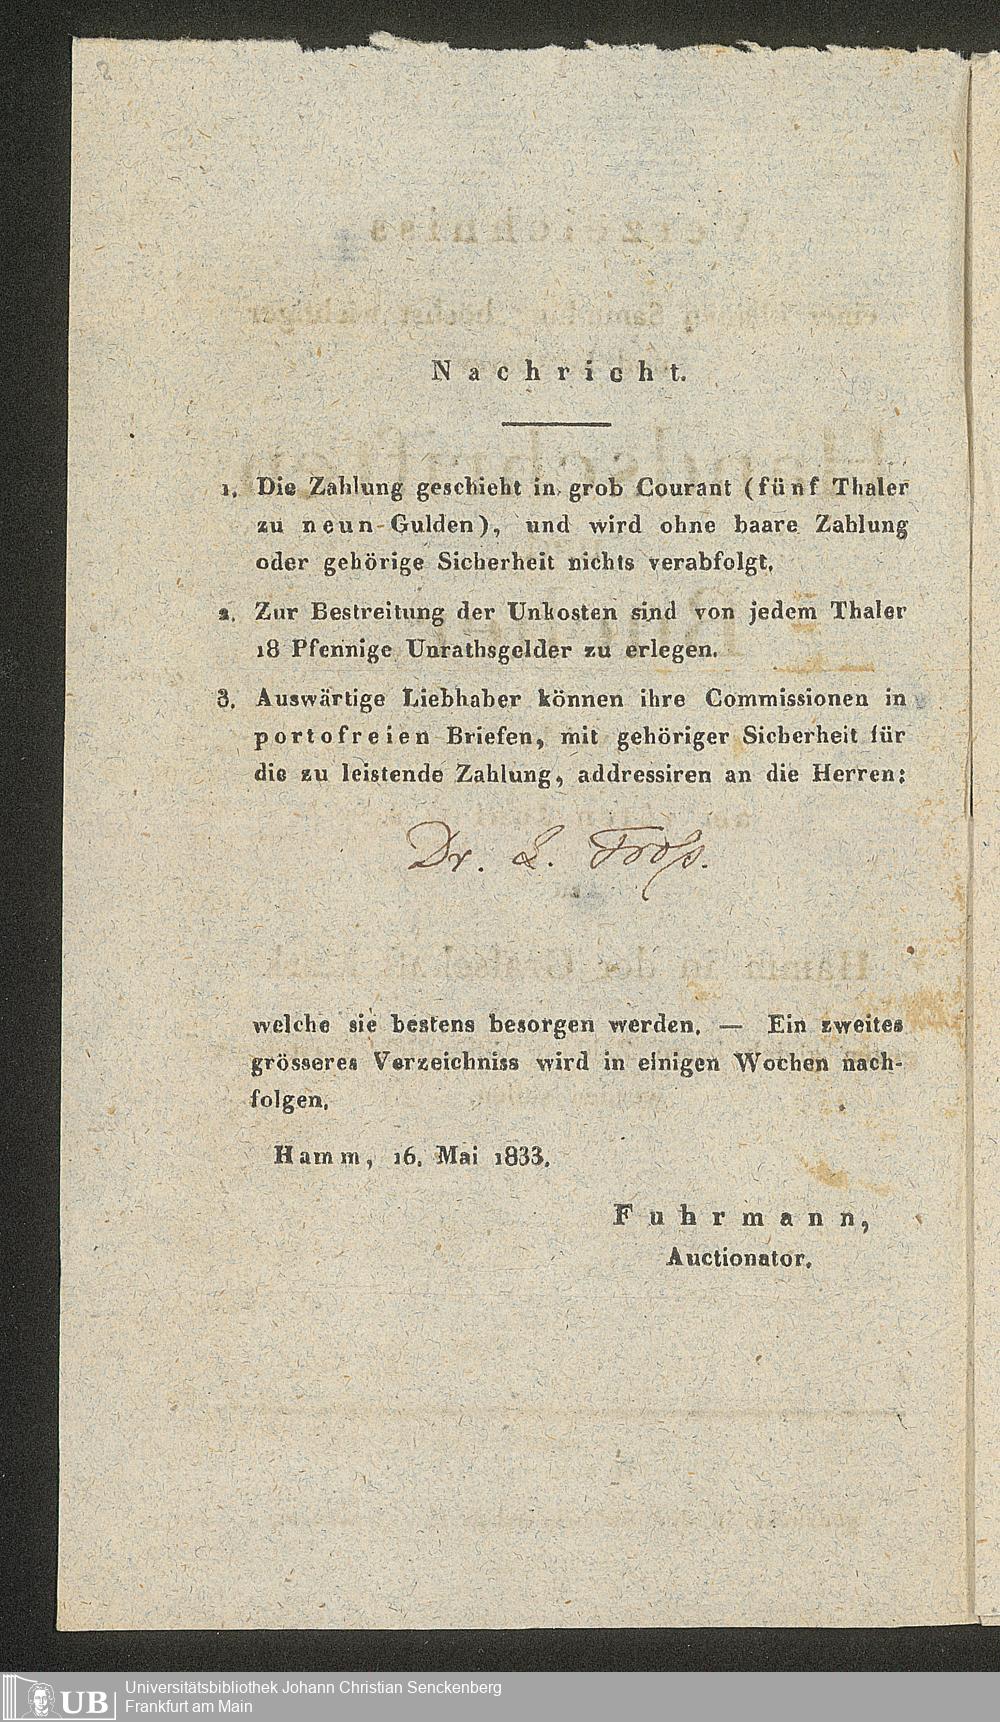 Nachricht.
1. Die Zahlung geschieht in grob Courant (fünf Thaler
zu neun Gulden), und wird ohne baare Zahlung
oder gehörige Sicherheit nichts verabfolgt.
2. Zur Bestreitung der Unkosten sind von jedem Thaler
18 Pfennige Unrathsgelder zu erlegen.
3. Auswärtige Liebhaber können ihre Commissionen in
portofreien Briefen, mit gehöriger Sicherheit für
die zu leistende Zahlung, addressiren an die Herren:
Dr. L. Troß.
welche sie bestens besorgen werden. — Ein zweites
grösseres Verzeichniss wird in einigen Wochen nach-
folgen.
Hamm, 16. Mai 1833.
Fuhrmann,
Auctionator.
UB
Universitätsbibliothek Johann Christian Senckenberg
Frankfurt am Main